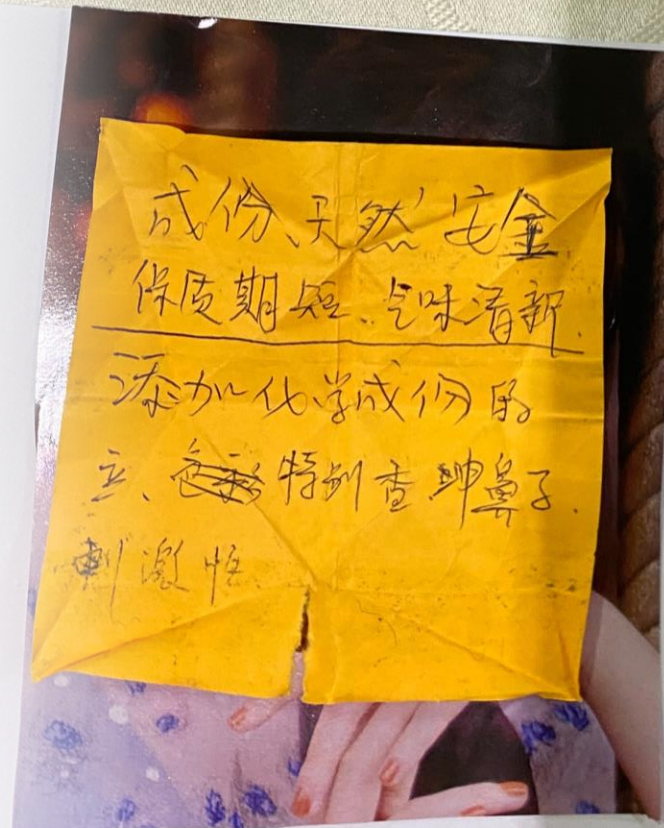 成份、天然、安全
保质期短、气味清新.
添加化学成份的
特别香 鼻子.
刺激性